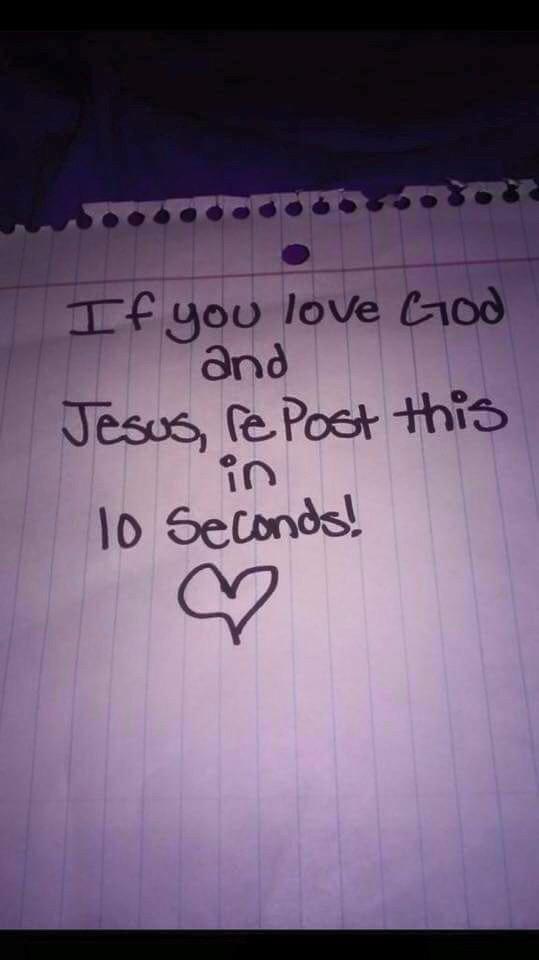 If you love God
and
Jesus, rePost this
in
10 Seconds!